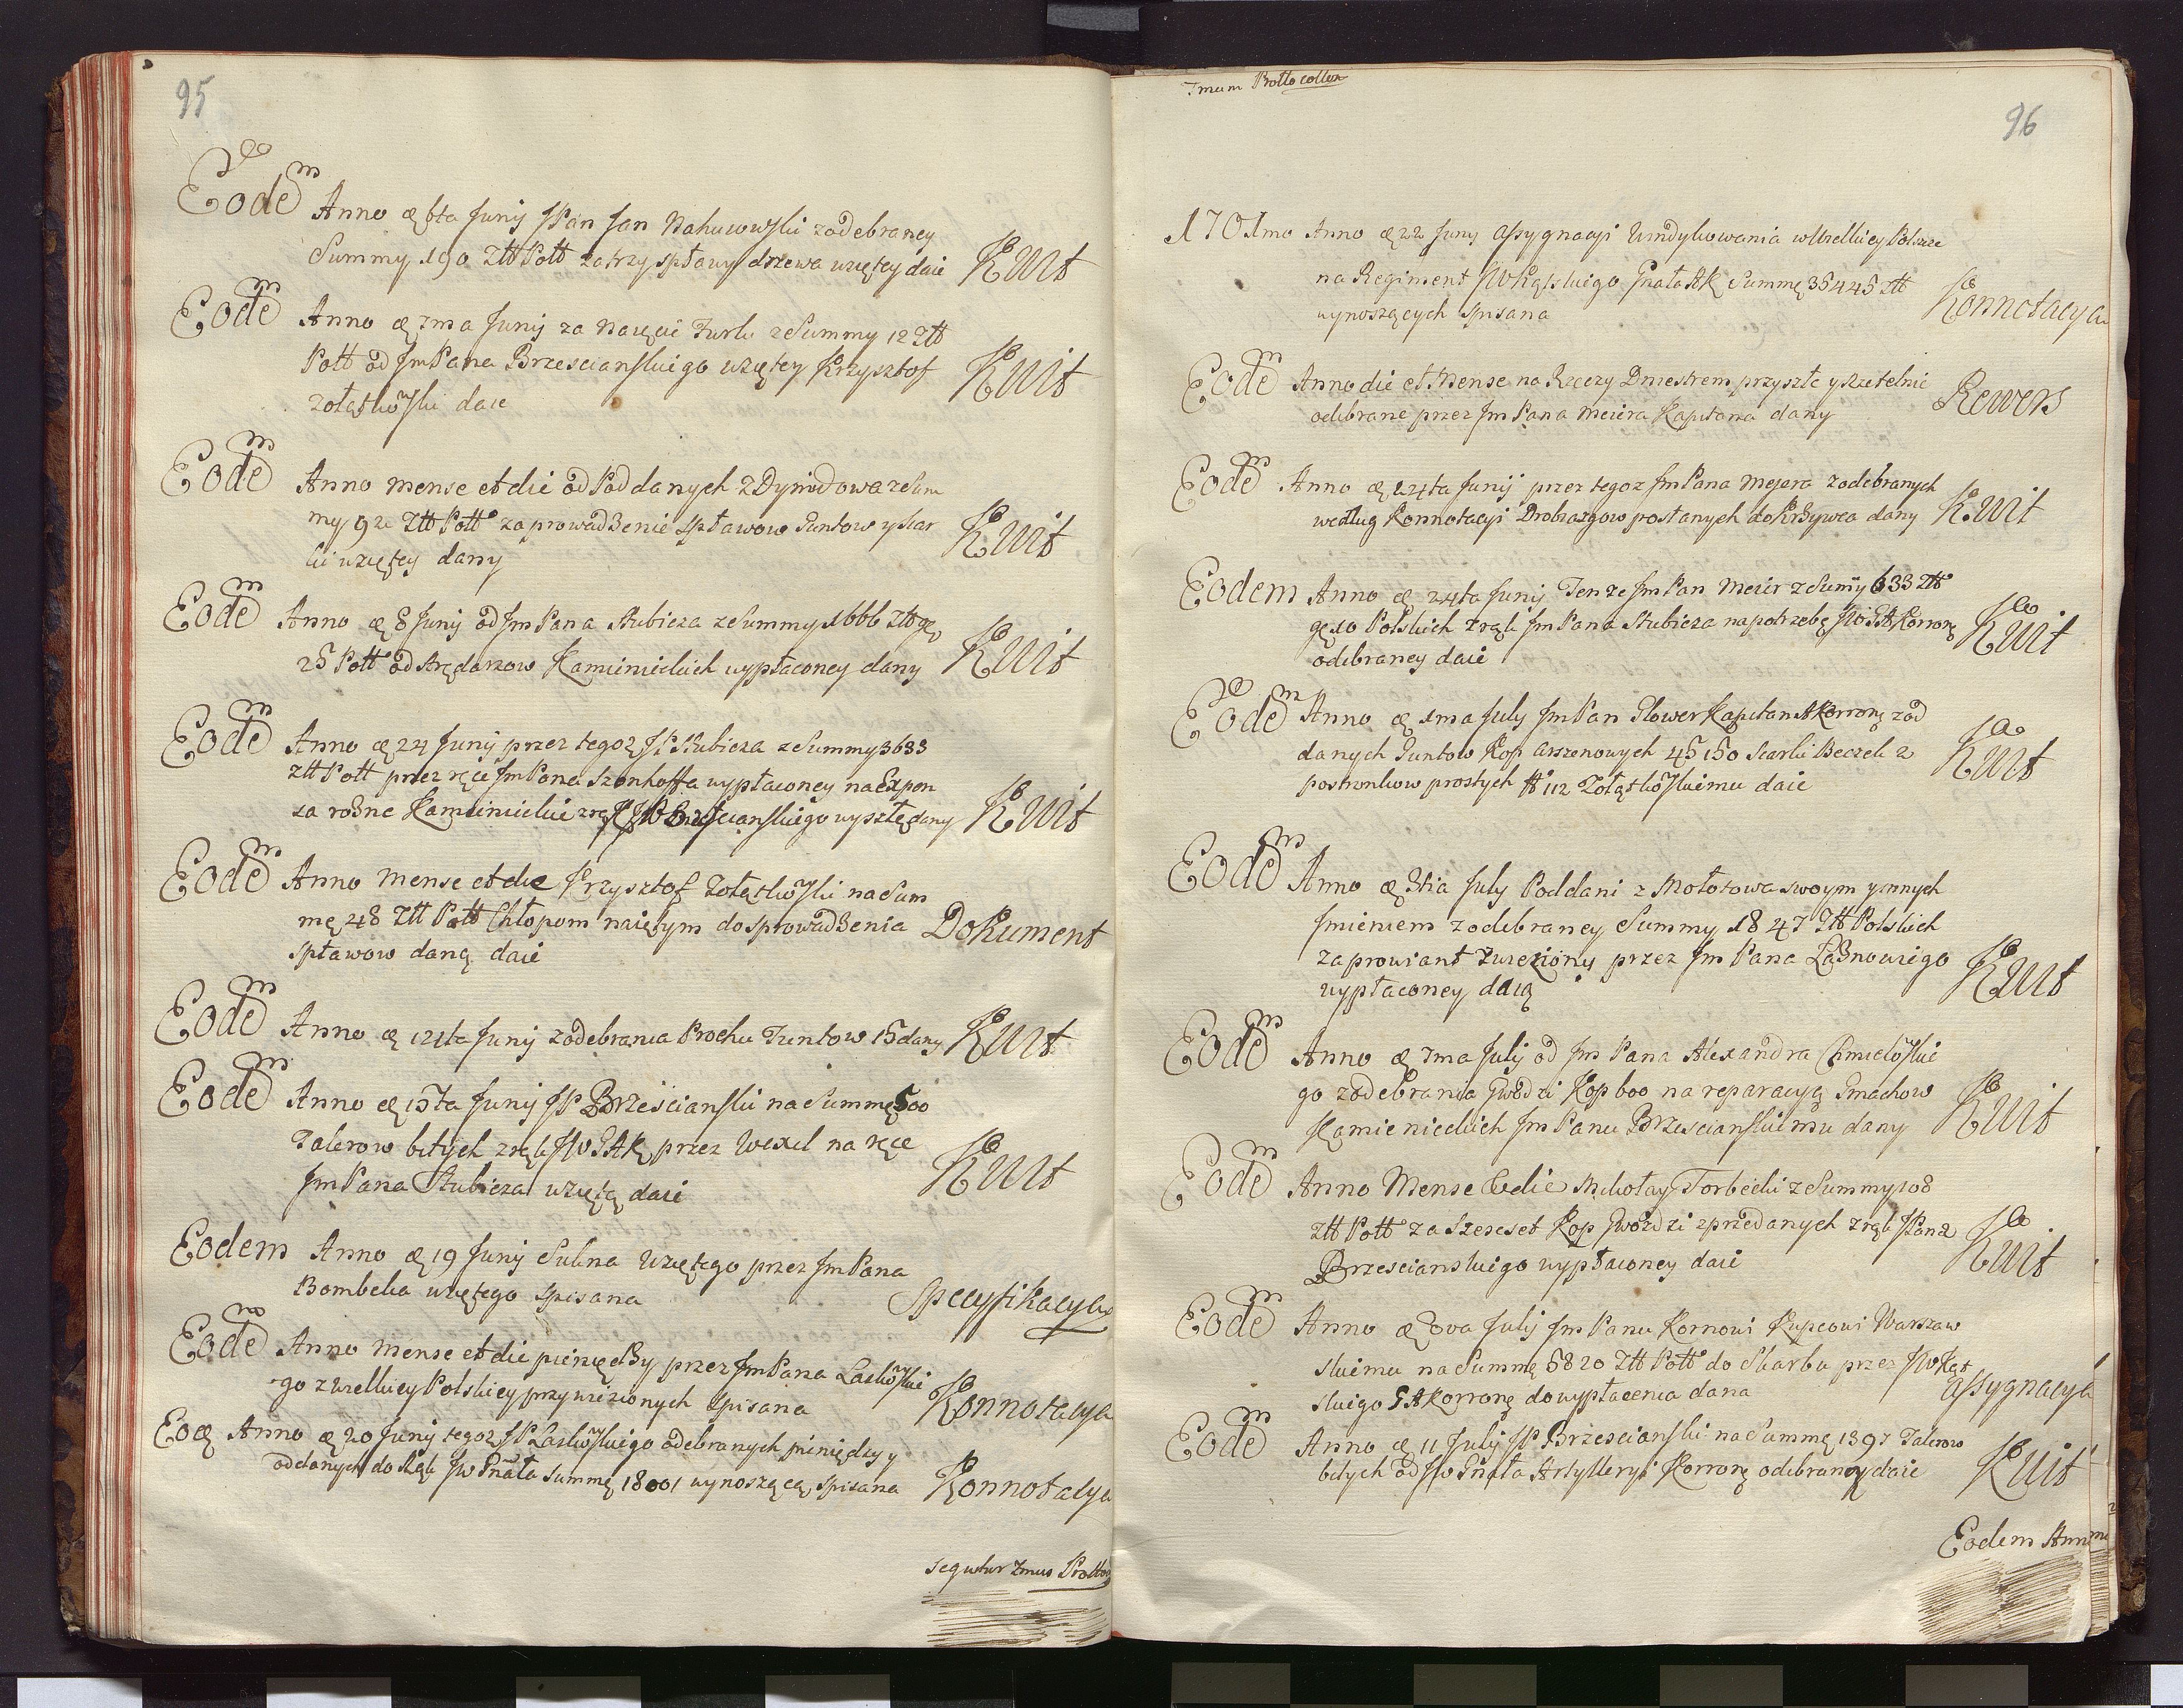 95
Eodem Anno æ 6ta Junij JPan Jan Nahuiowski zodebraney
Summy 190 Ztt Pott za trzy spławy drzewa wziętey daie Kwit
Eodem Anno æ 7ma Junij za Naięcie Furli z Summy 12 Ztt
Pott od Jm Pana Brzescianskiego wziętey Krzysztof Kwit
Zołątkowski daie
Eodem Anno mense et die od Poddanych z Dynidowa z Sum
my 92 Ztt Pott za prowadzenie spławow Juntow y Siar Kwit
ki wziętey dany
Eodem Anno æ 8 Junij od Jm Pana Stubicza z Summy 1666 Ztt ge
25 Pott od Arędarzow Kamienieckich wypłaconey dany Kwit
Eodem Anno æ 24 Junij przez tegoz JP Stubicza z Summy 3683
Ztt Pott przez ręce Jm Pana Szonhoffa wypłaconey na Expen
sa rożne Kamienieckie z rąk JP Brzescianskiego wyszłe dany Kwit
Eodem Anno Mense et die Krzysztof Zołątkowski na Sum
mę 48 Ztt Pott Chłopom naiętym do sprowadzenia Dokument
spławow daną daie
Eodem Anno æ 12ta Junij zodebrania Prochu Funtow 15 dany Kwit
Eodem Anno æ 15ta Junij JP Brzescianski na Summę 500
Talerow bitych z rąk JW GAK przez Wexel na ręce Kwit
Jm Pana Stubicza wziętą daie
Eodem Anno æ 19 Junij Sukna Wziętego przez Jm Pana
Bombeka wziętego spisana Specyfikacya
Eodem Anno Mense et die pieniędzy przez Jm Pana Laskowskie
go z wielkiey Polskiey przywiezionych spisana Konnotacya
Eoæ Anno æ 20 Junij tegoz JP Laskowskiego odebranych pieniędzy y
oddanych do Rąk JW Gnała Summę 18001 wynoszącą, spisana Konnotacya
Sequtur 7mus Protto
7mum Prottocollon
96
1701mo Anno æ 22 Junij Assygnacyi Windykowania w Wielkiey Polszcze
na Regiment JW Kąskiego Gnała AK Summę 35445 Ztt
wynoszących spisana Konnotacya
Eodem Anno die et Mense na Rzeczy Dniestrem przyszłe y Rzetelnie
odebrane przez Jm Pana Meiera Kapitana dany Rewers
Eodem Anno æ 24ta Junij przez tegoz Jm Pana Mejera zodebranych
według Konnotacyi Drobiazgow posłanych do Krzywca dany Kwit
Eodem Anno æ 24ta Junij Tenze Jm Pan Meier z Summy 633 Ztt
gę 10 Polskich z rąk Jm Pana Stubicza na potrzebę JW GA Korronę
odebraney daie Kwit
Eodem Anno æ 1ma July Jm Pan Glower Kapitan A Korronę zod
danych Juntow Kop arszenowych 45 150 Siarki Beczek 2
postronkow prostych tt 112 Zołątkowskiemu daie Kwit
Eodem Anno æ 3tia July Poddani z Mołotowa swoym ynnych
Jmieniem zodebraney Summy 1847 Ztt Polskich
za prowiant zwieziony przez Jm Pana Łąznowiego
wypłaconey daią Kwit
Eodem Anno æ 7ma July od Jm Pana Alexandra Chmielowskie
go zodebrania Gwozdzi Kop 600 na reparacyą Gmachow
Kamienieckich Jm Panu Brzescianskiemu dany Kwit
Eodem Anno Mense Edie Mikołay Torbecki z Summy 108
Ztt Pott za Szescset Kop Gwozdzi zprzedanych z rąk JPana
Brzescianskiego wypłaconey daie Kwit
Eodem Anno æ 8va July Jm Panu Kornowi Kupcowi Warszaw
skiemu na Summę 5820 Ztt Pott do Skarbu przez JW Kąt
skiego GA Korronę do wypłacenia dana Assygnacya
Eodem Anno æ 11 July JP Brzescianski na Summę 1397 Talerow
bitych od JW Gnała Artylleryi Korronę odebraney daie Kwit
Eodem Anno